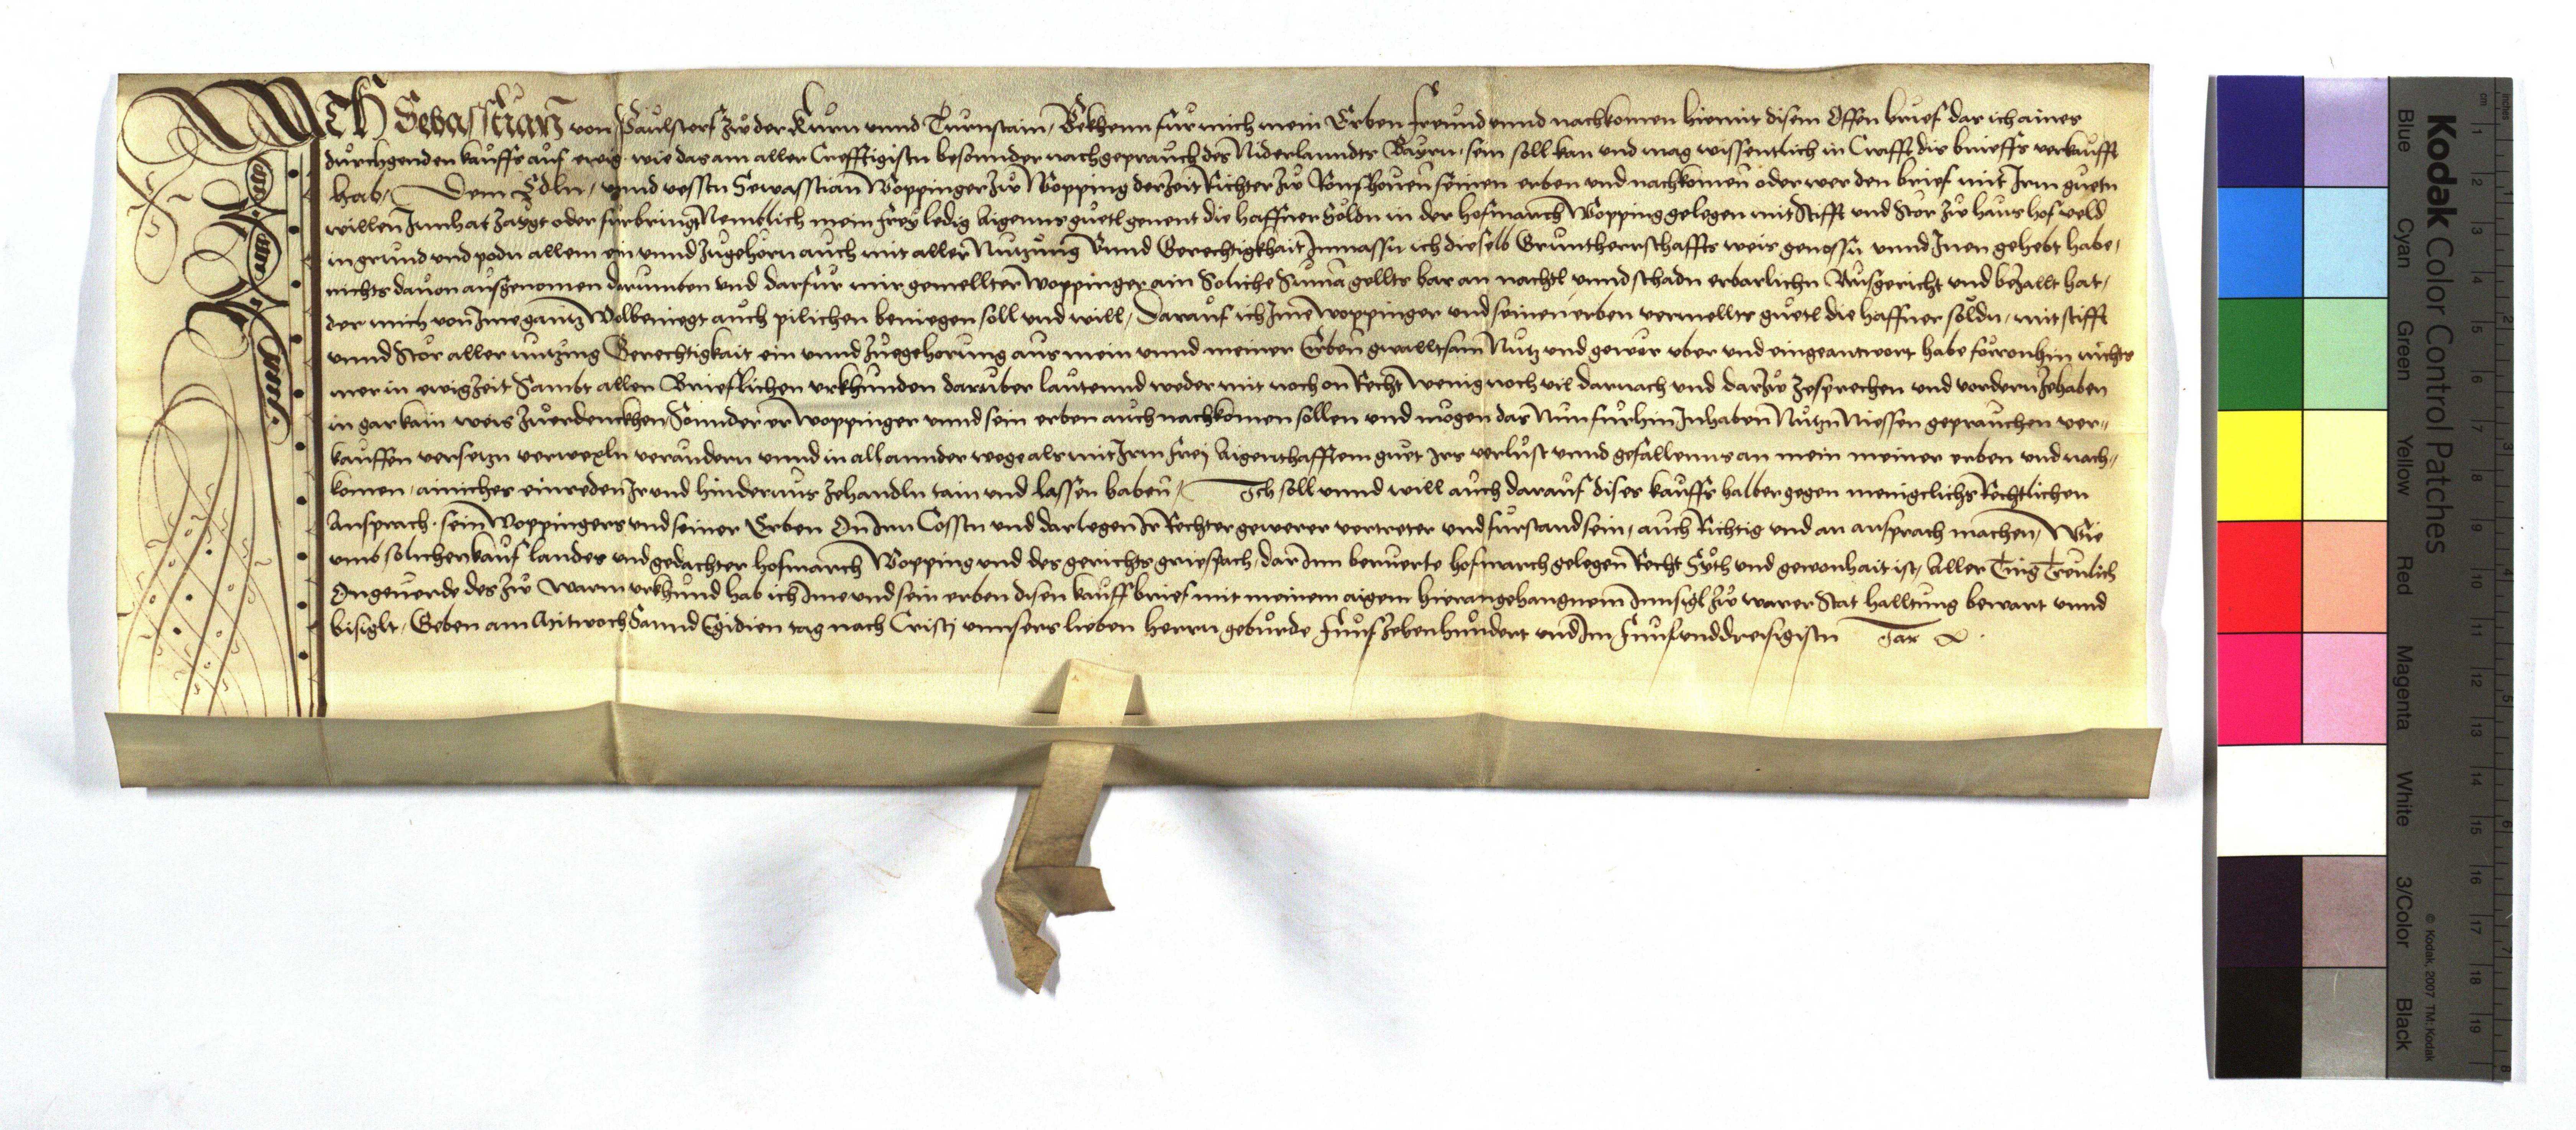 ICH Sebasstian von Paulstorf zu der Kurn unnd Turnstain, Bekhenn fur mich mein Erben freund unnd nachkomen hiemit disem Offen brief das ich aines
durchgenden kauffs auf ewig wie das am aller Crefftigisten besonnder nach geprauch des Niderlanndts Bayrn sein soll kan und mag wissentlich in Crafft dis brieffs verkaufft
hab, Dem Edln, unnd vessten Sewasstian Woppinger zu Wopping der Zeit Richter zu Ronshoven seinen erben und nachkomen oder wer den brief mit Irm guetn
willen Innhat zaygt oder furbringt Nemblich mein frey ledig Aigenns guetl genent die haffner Soldn in der hofmarch Wopping gelegen mit Stifft und Stor zu haus hof veld
in grund und podn allem ein unnd zugehorn auch mit aller Nutzung Unnd Gerechtigkhait Inmassn ich dieselb Gruntherrschaffts weis genossn unnd Innen gehebt habe,
nichts davon ausgenomen darumben und darfur mir gemellter Woppinger ain Soliche Suma gellts bar an nachtl unnd schadn erbarlichn Ausgericht und bezallt hat,
der mich von Ime gantz Wolbeniegt auch pilichen beniegen soll und will, Darauf ich Ime Woppinger und seinen erben vermellts guetl die haffner soldn, mit stifft
unnd Stor aller nutzung Gerechtigkait ein unnd zuegehorung aus mein unnd meiner Erben gwalltsam Nutz und gewer uber und eingeantwort habe foronhin nichts
mer in ewig Zeit Sambt allen Brieflichen urkhunden daruber lauttennd weder mit noch on Recht wenig noch vil darnach und darzu zesprechen und vordern zehaben
in gar kain weis zuerdenckhen, Sonnder er Woppinger unnd sein erben auch nachkomen sollen und mogen das Nun furhin Inhaben Nutzn Niessen geprauchen ver=
kauffen versetzn verwexln verandern unnd in all annder wege als mit Irm frej Aigenthafftem guet Irs verlust unnd gefallenns an mein meiner erben und nach,
komen, ainiches einreden Ir und hindernus zehandln tain und lassen haben, Ich soll unnd will auch darauf dises kauffs halben gegen menigclichs Rechtlichen
Ansprach, sein Woppingers und seiner Erben On Irn Cossten und darlegen Ir Rechter gewerer vertreter und furstand sein, auch Richtig und an ansprach machen, Wie
umb solichen kauf landes und gedachter hofmarch Wopping und des gerichts griespach, dar Inn beruerte hofmarch gelegen Recht Syth und gewonhait ist, Aller Ding Treulich
Ongeverde des zu warm urkhund hab ich Ime und sein erben disen kauffbrief mit meinem aigem hieran gehangnem Innsigl zu warer Stat halltung bewart unnd
bisiglt, Geben am Mitwoch Sannd Egidien tag nach Cristj unnsers lieben herrn geburde Funfzehenhundert und Im Funfunddreisigistn Jar